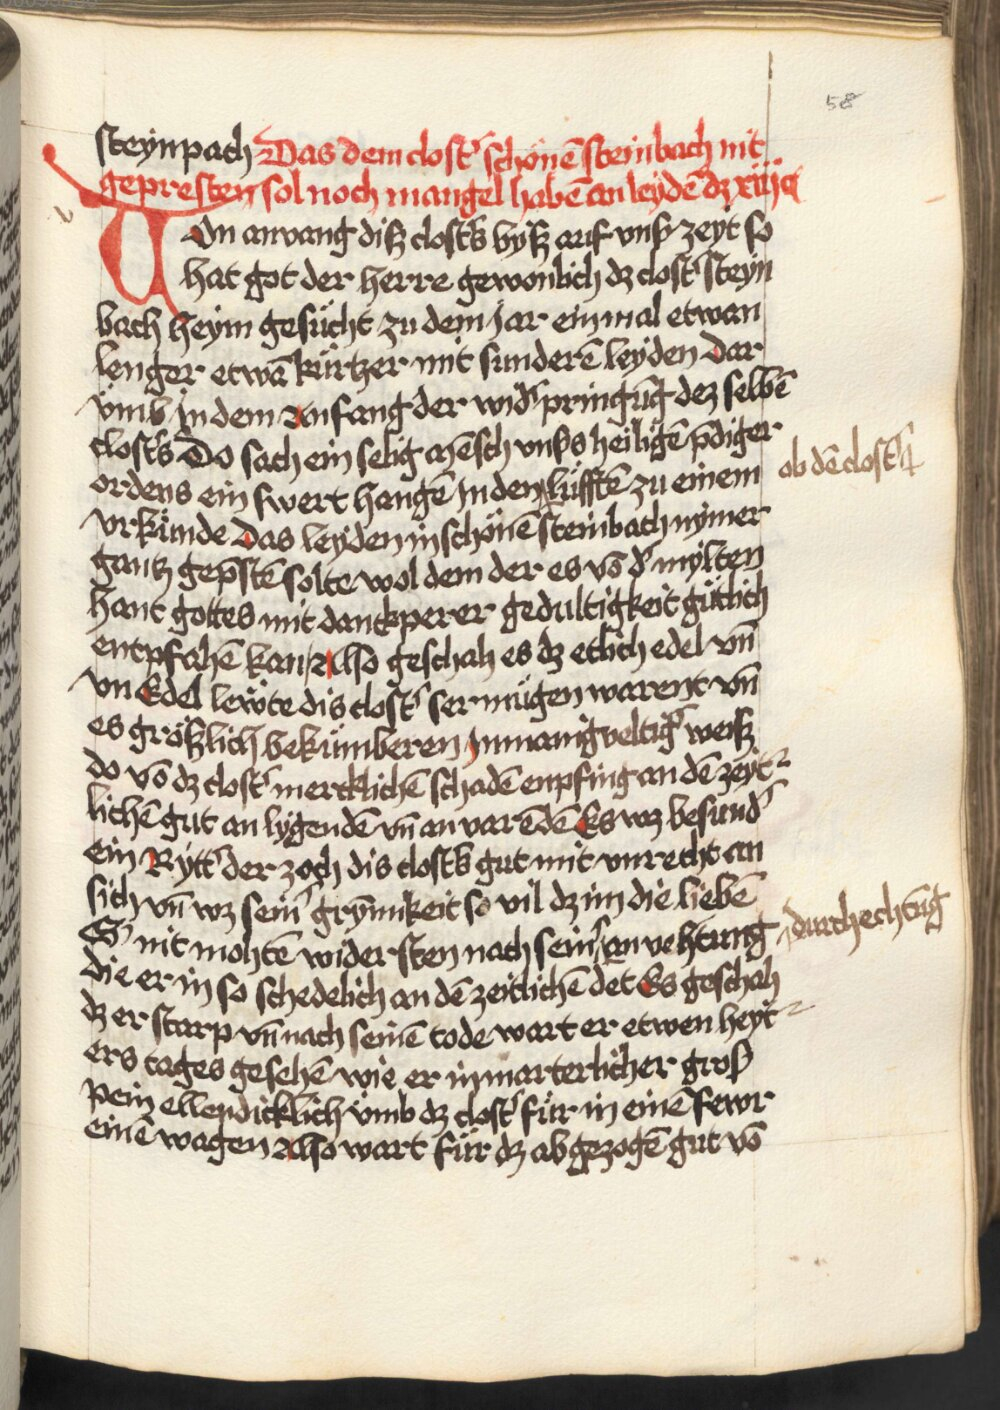 58
steynpach Das dem clost' schönē steinbach nit
gepresten sol noch mangel habē an leydē dz xiiij c
Von anvang diß closts byß auf vnß zeyt so
hat got der herre gewonlich dz clost' steyn
bach heym gesücht zu dem jar ein mal etwan
lenger etwā kürtzer mit sunderē leyden Dar
vmb in dem anfang der wid'pringūg dez selbē
closts Do sach ein selig mēsch vnsß heiligē p̄diger
ordens ein swert hangē in den lüfftē zu einem
ob dē clost'
vrkünde Das leyden in schönē steinbach nymer
gantz gep̄stē solte wol dem der es vō d' mylten
hant gottes mit danckperer gedultigkeit gütlich
entpfahē kan Also geschah es dz etlich edel vn̄
vn Edel lewte dis clost' ser mügen warent vn̄
es größlich bekümberen in manigveltig' weiß
do vō dz clost' mercklichē schadē enpfing an dē zeyt
lichē gut an lygendē vn̄ an varēdē Es wz besund'
ein Rytt' der zoch dis closts gut mit vnrecht an
sich vn̄ wz sein' grym̄keit so vil dz im die liebē
S' nit mohtē widersten nach sein' an vehtung
durchechtūg
die er in so schedelich an dē zeitlichē det Es geschah
dz er starp vn̄ nach seinē tode wart er etwen heyt
ers tages gesehē wie er in marterlicher groß
pein ellendicklich vmb dz clost' für in einē fewr
einē wagen Also wart für dz abgezogē gut vō